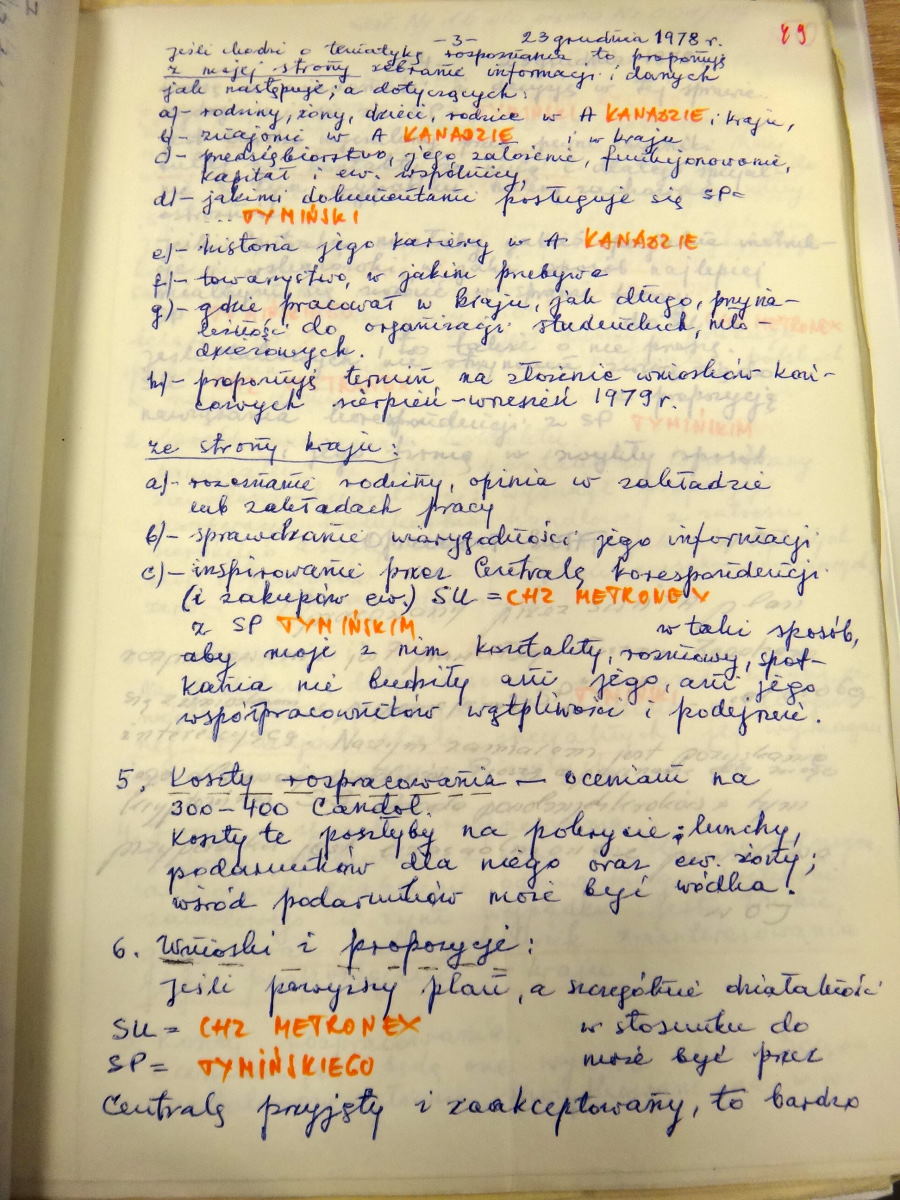 -3- 23 grudnia 1978 r. 89
jeśli chodzi o tematykę rozpoznania, to proponuję
z mojej strony zebranie informacji i danych
jak następuje, a dotyczących:
a)- rodziny, żony, dzieci, rodzice w A KANADZIE i kraju,
b)- znajomi w A KANADZIE i w kraju
c)- przedsiębiorstwo, jego założenie, funkcjonowanie,
kapitał i ew. wspólnicy,
d)- jakimi dokumentami posługuje się SP=
TYMIŃSKI
e)- historia jego kariery w A KANADZIE
f)- towarzystwo, w jakim przebywa
g)- gdzie pracował w kraju, jak długo, przyna-
leżności do organizacji studenckich, mło-
dzieżowych.
h)- proponuję termin, na złożenie wniosków koń-
cowych sierpień-wrzesień 1979 r.
ze strony kraju:
a)- rozeznanie rodziny, opinia w zakładzie
lub zakładach pracy
b)- sprawdzanie wiarygodności jego informacji
c)- inspirowanie przez Centralę korespondencji
(i zakupów ew.) SU = CHZ METRONEX
z SP TYMIŃSKIM w taki sposób,
aby moje z nim kontakty, rozmowy, spot-
kania nie budziły ani jego, ani jego
współpracowników wątpliwości i podejrzeń.
5. Koszty rozpracowania - oceniam na
300-400 Candol.
Koszty te poszłyby na pokrycie: lunchy,
podarunków dla niego oraz ew. żony;
wśród podarunków może być wódka.
6. Wnioski i propozycje:
Jeśli powyższy plan, a szczególnie działalność
SU = CHZ METRONEX w stosunku do
SP= TYMIŃSKIEGO może być przez
Centralę przyjęty i zaakceptowany, to bardzo